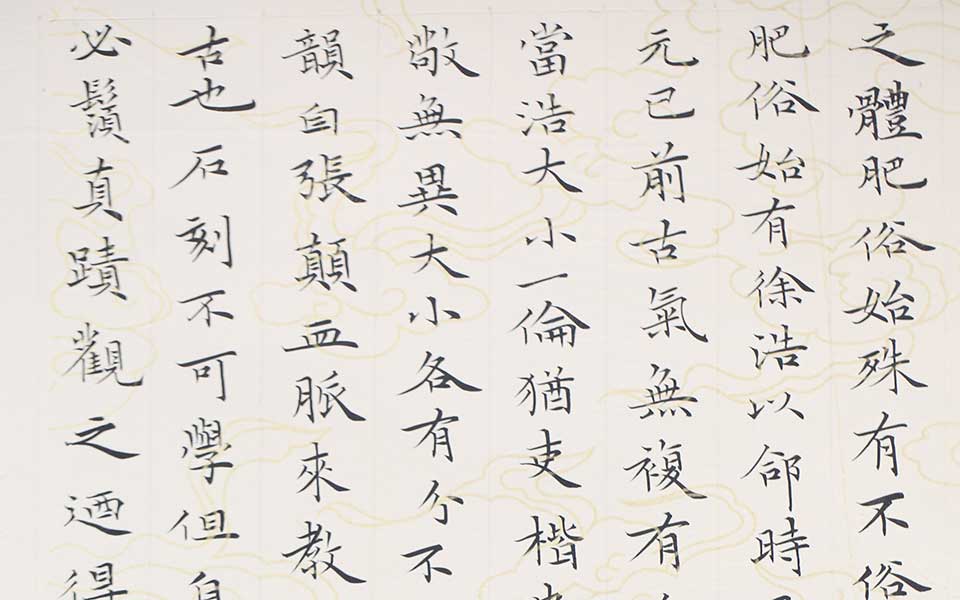 之體肥俗始殊有不俗
肥俗始有徐浩以郃時
元已前古氣無複有
當浩大小一倫猶吏楷
敬無異大小各有分不
韻自張顛血脈來教
古也石刻不可學但自
必鬚真蹟觀之迺得